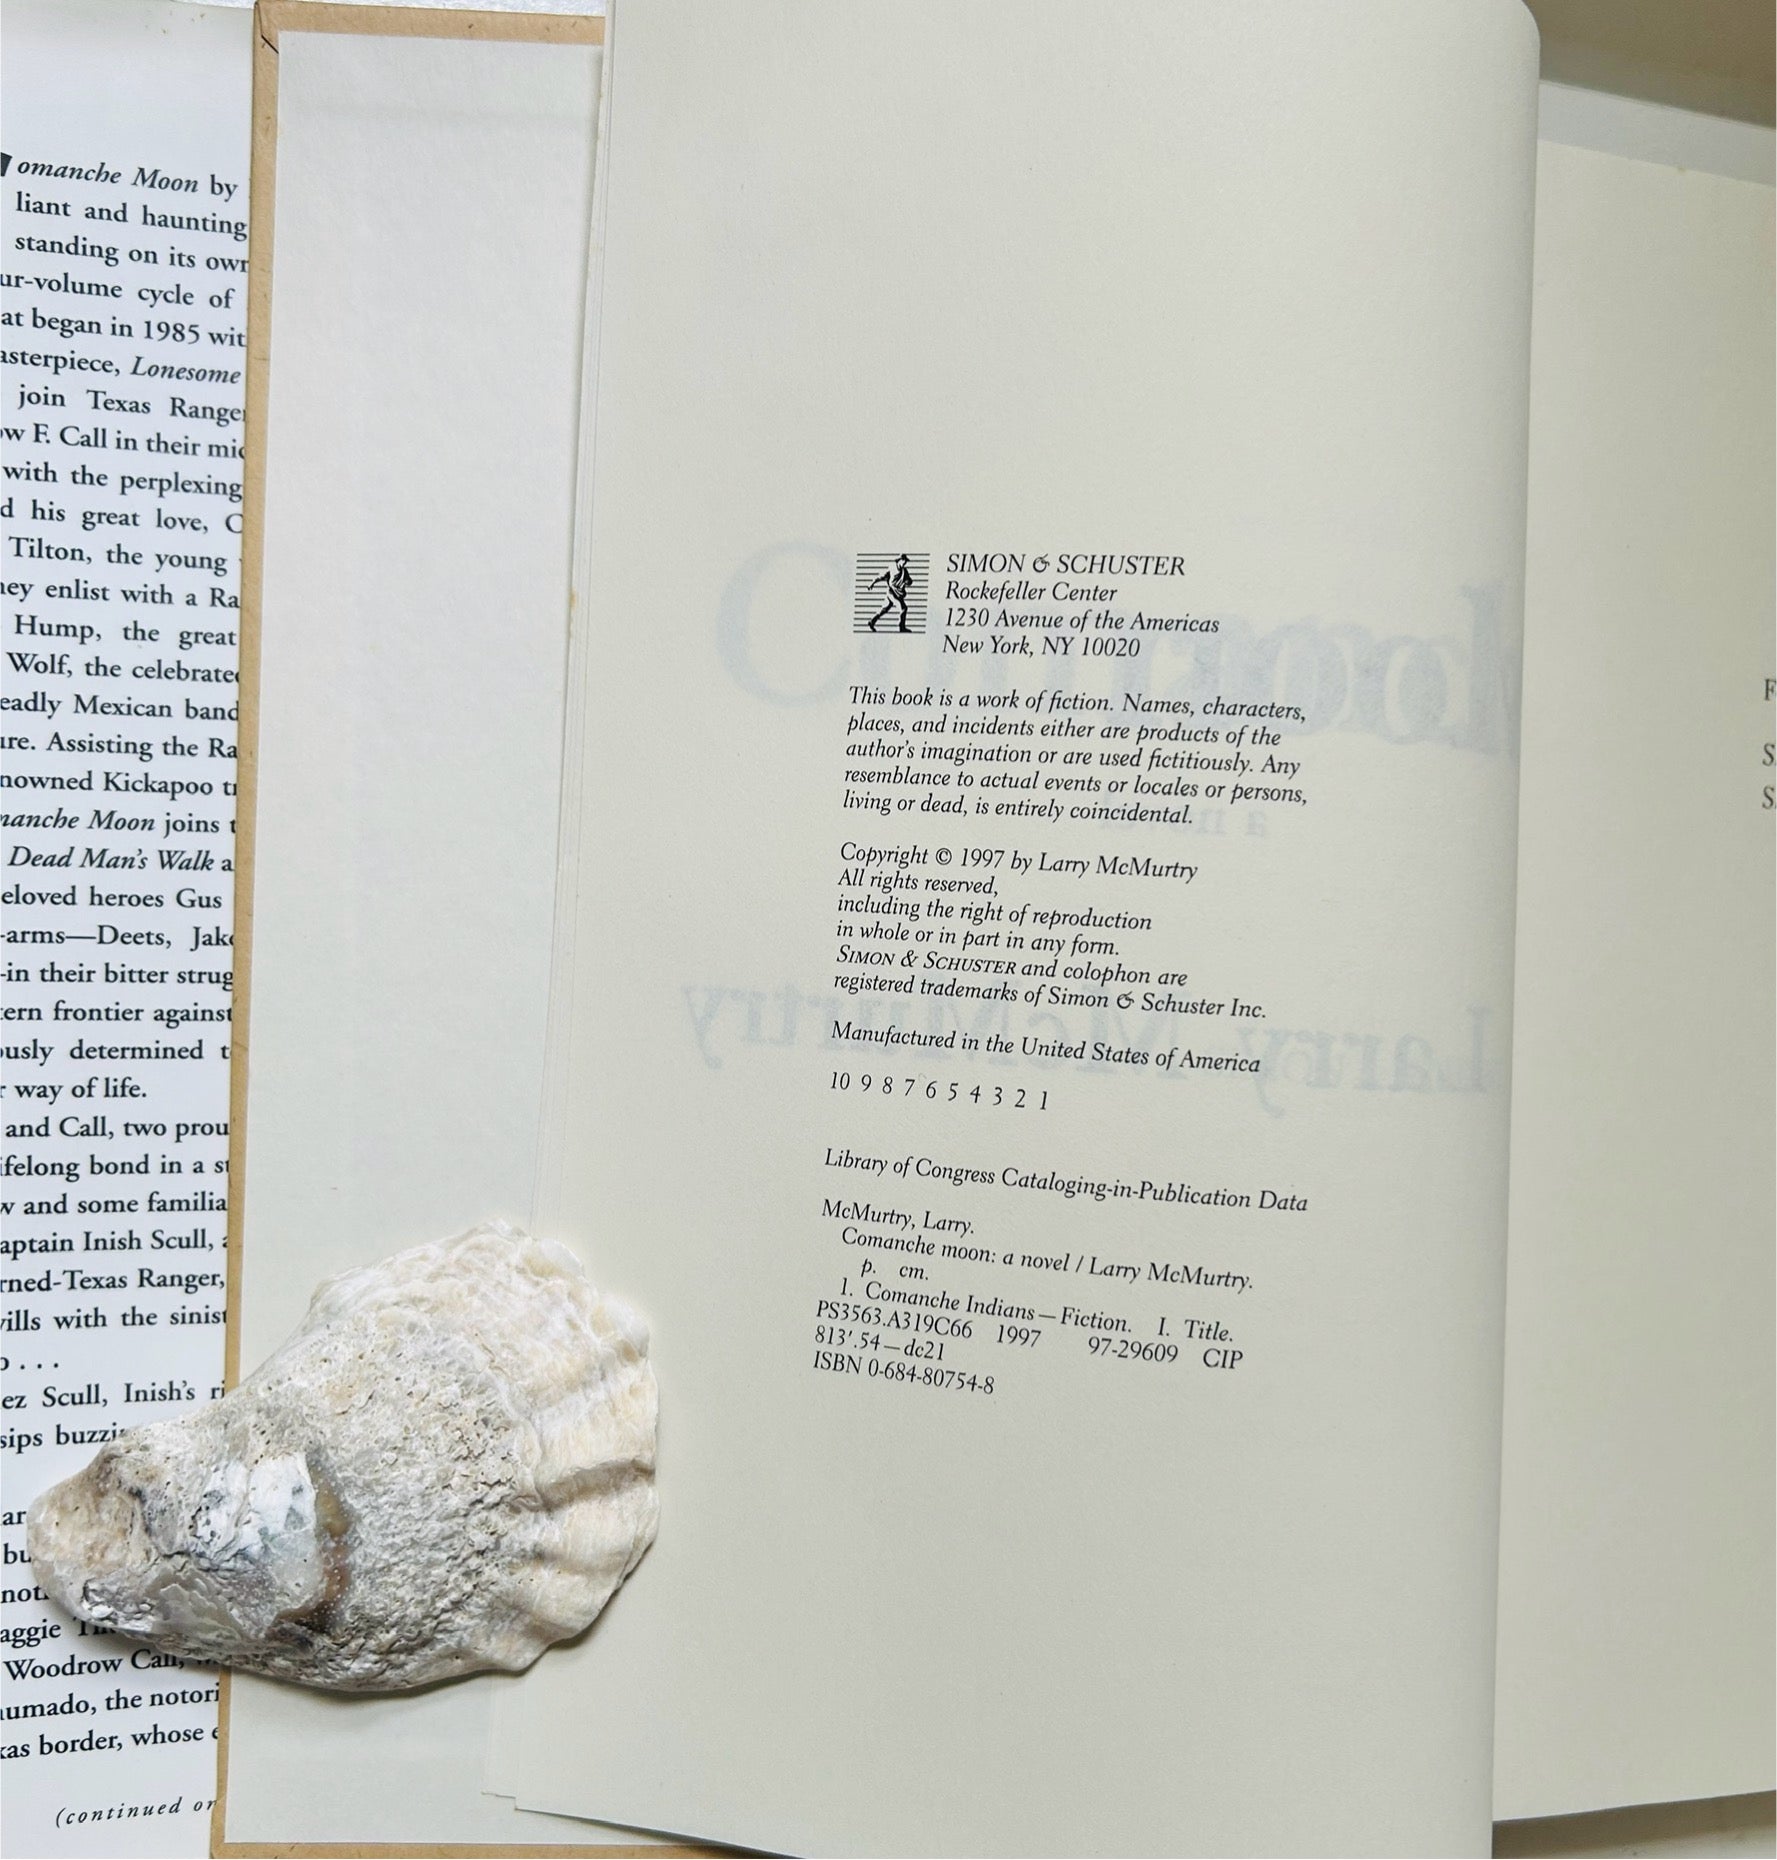 omanche Moon by
liant and haunting
standing on its own
ur-volume cycle of
at began in 1985 wit
asterpiece, Lonesome
join Texas Ranger
ow F. Call in their mid
with the perplexing
d his great love, C
Tilton, the young
ney enlist with a Ra
Hump, the great
Wolf, the celebrated
eadly Mexican band
ure. Assisting the Ra
nowned Kickapoo tr
manche Moon joins t
Dead Man's Walk a
eloved heroes Gus
-arms—Deets, Jake
-in their bitter strug
tern frontier against
ously determined t
r way of life.
and Call, two prou
ifelong bond in a st
w and some familia
aptain Inish Scull, a
rned-Texas Ranger,
vills with the sinist
o . . .
ez Scull, Inish's ri
sips buzzi
ar
bu
not
aggie
Woodrow Call,
umado, the notori
xas border, whose e
(continued on
SIMON & SCHUSTER
Rockefeller Center
1230 Avenue of the Americas
New York, NY 10020
This book is a work of fiction. Names, characters,
places, and incidents either are products of the
author's imagination or are used fictitiously. Any
resemblance to actual events or locales or persons,
living or dead, is entirely coincidental.
Copyright © 1997 by Larry McMurtry
All rights reserved,
including the right of reproduction
in whole or in part in any form.
SIMON & SCHUSTER and colophon are
registered trademarks of Simon & Schuster Inc.
Manufactured in the United States of America
10 9 8 7 6 5 4 3 2 1
Library of Congress Cataloging-in-Publication Data
McMurtry, Larry.
Comanche moon: a novel / Larry McMurtry.
p. cm.
1. Comanche Indians—Fiction. I. Title.
PS3563.A319C66 1997 97-29609 CIP
813'.54—dc21
ISBN 0-684-80754-8
F
S
S